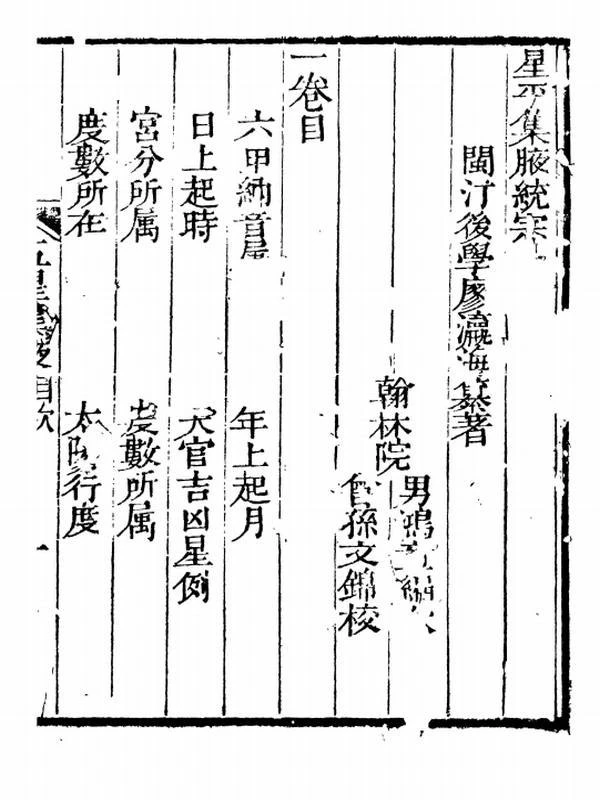 星平集腋統宗
閩汀後學廖瀛海纂著
翰林院
男鴻
曾孫文錦校
一卷目
六甲納音屬
年上起月
日上起時
天官吉凶星例
宮分所属
度數所属
度數所在
太陽行度
目次
一